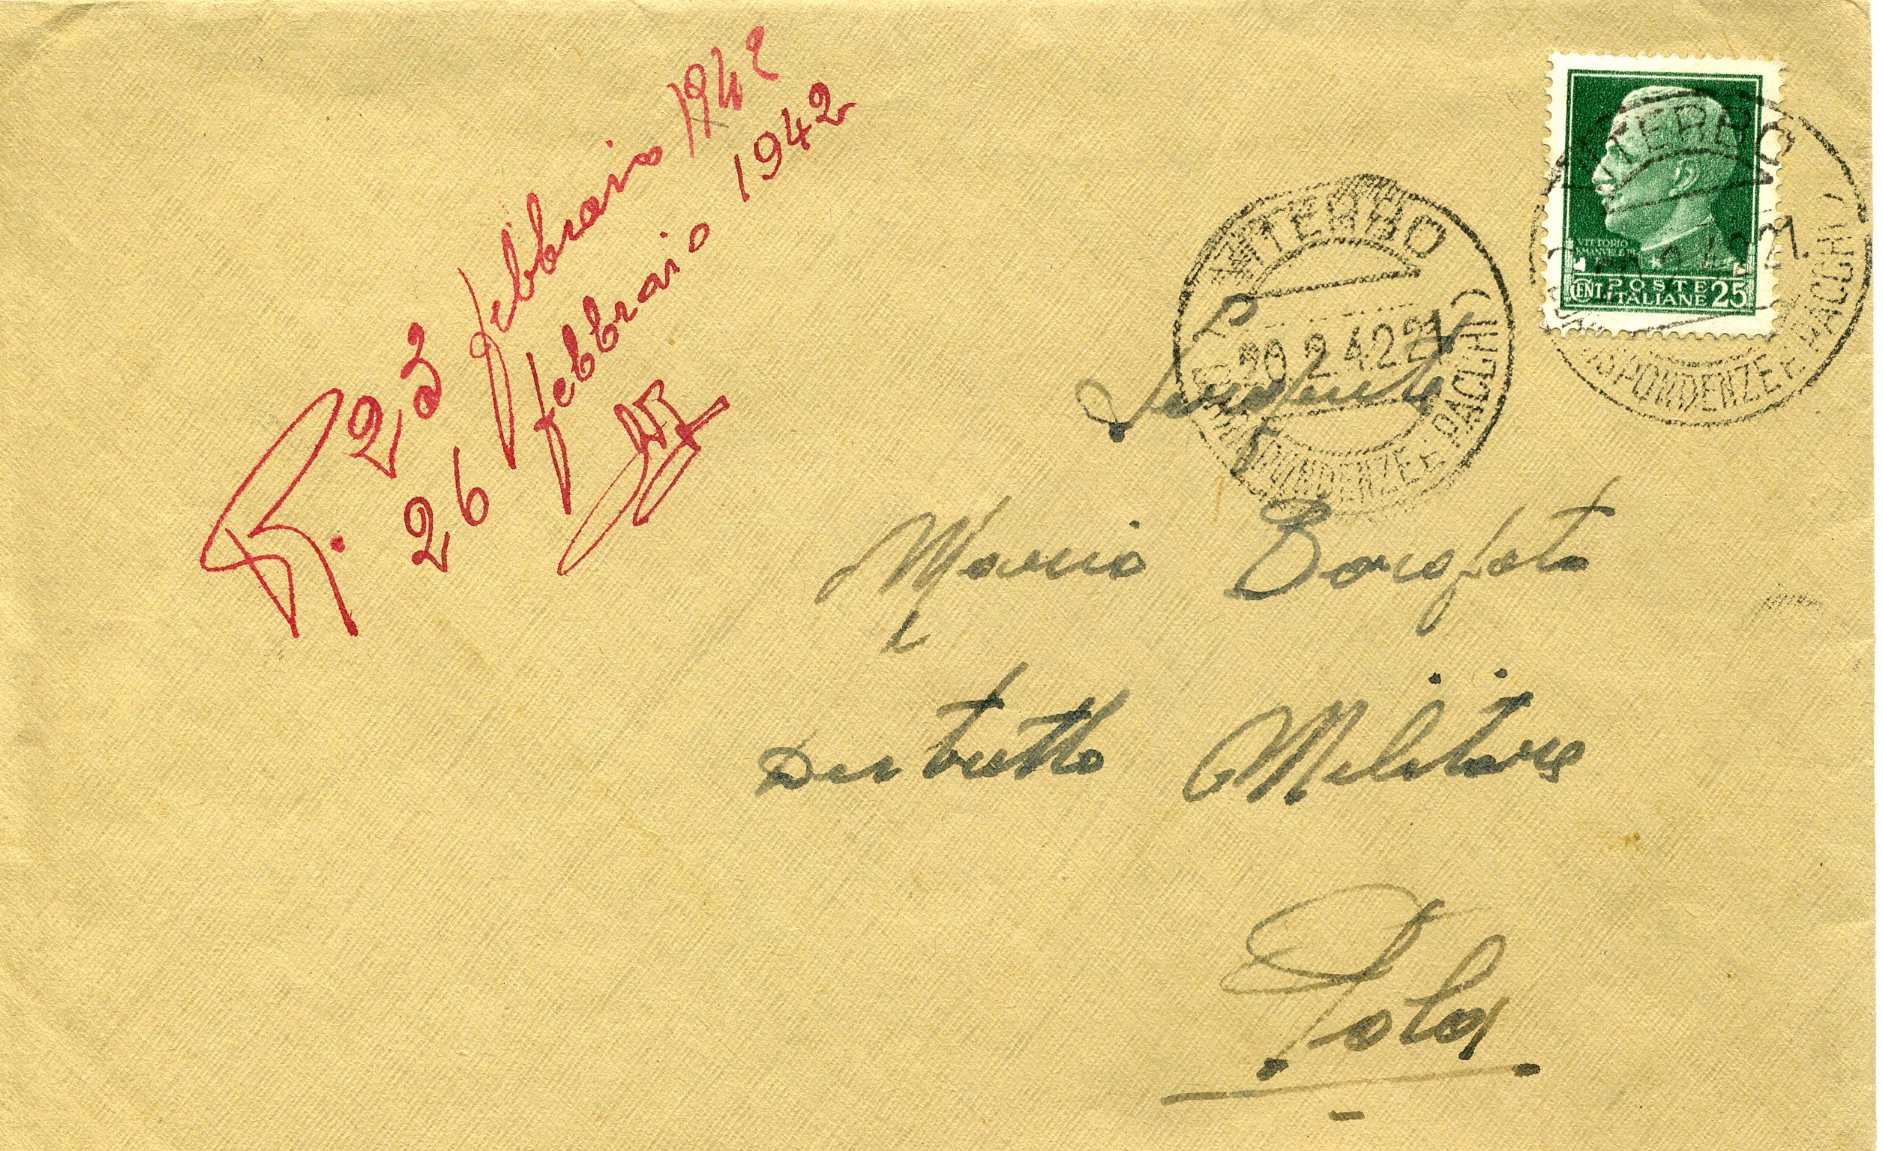 R. 23 febbraio 1942
26 febbraio 1942
VITERBO
20.2.42.21
CORRISPONDENZE E PACCHI
VITERBO
2.42.21
CORRISPONDENZE E PACCHI
VITTORIO
EMANUELE III
CENT. POSTE
ITALIANE 25
Mario
Distretto Militare
Pola